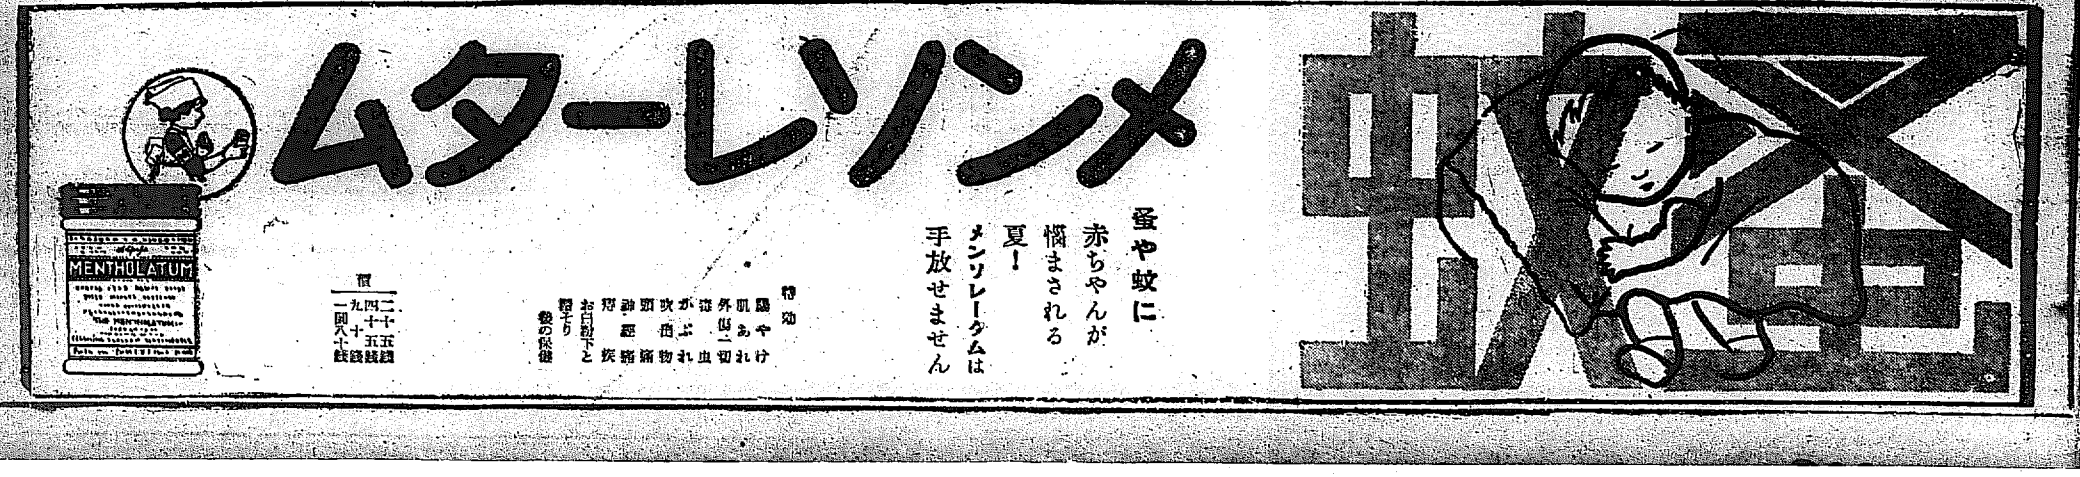 蚤蚊
メンソレータム
蚤や蚊に
赤ちやんが
惱まされる
夏！
メンソレータムは
手放せません
特効
陽やけ
肌あれ
外傷一切
毒虫
かぶれ
吹出物
頭痛
神經痛
痔疾
お白粉下と
髭そり
後の保健
價
二十五銭
四十五銭
九十銭
一圓八十銭
MENTHOLATUM